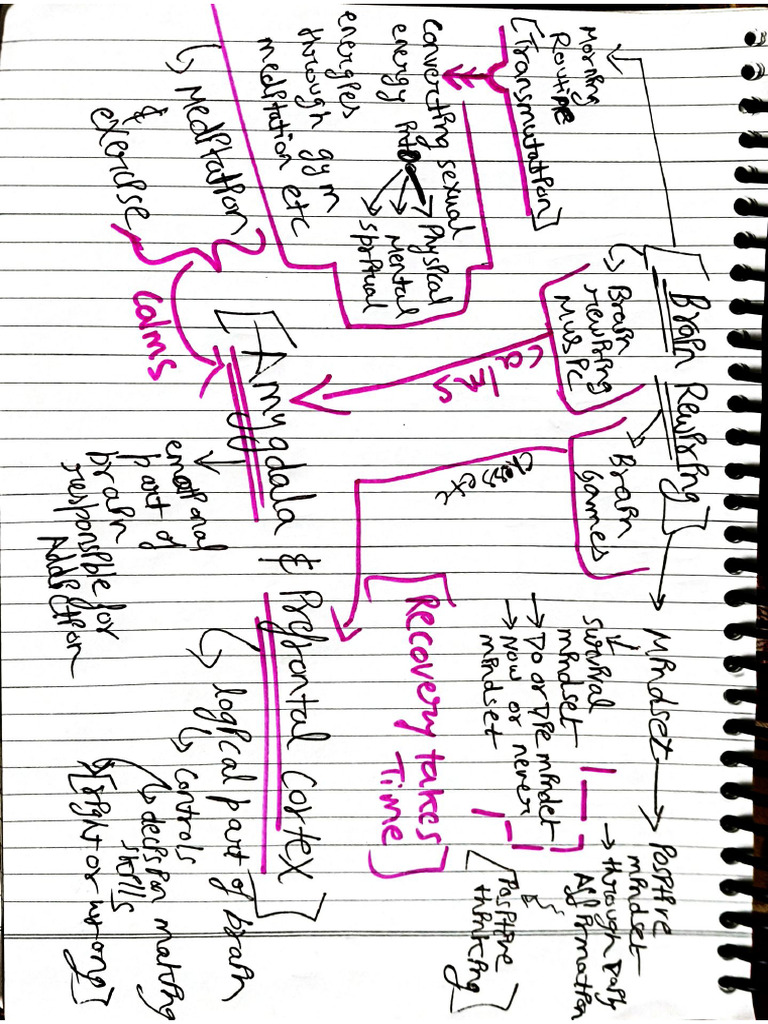 [Brain Rewiring]
Morning
Routine
[Transmutation]
Converting sexual
energy into
Physical
Mental
spiritual
energies
through gym
meditation etc
Meditation
&
exercise
calms
Brain
rewiring
Music
calms
Brain
Games
Chess etc
Mindset
survival
mindset
Do or Die mindset
Now or never
mindset
Positive
mindset
through daily
Affirmation
&
[Positive
thinking]
[Recovery takes
Time]
[Amygdala & Prefrontal Cortex]
emotional
part of
brain
responsible for
Addiction
logical part of brain
controls
decision making
skills
[right or wrong]